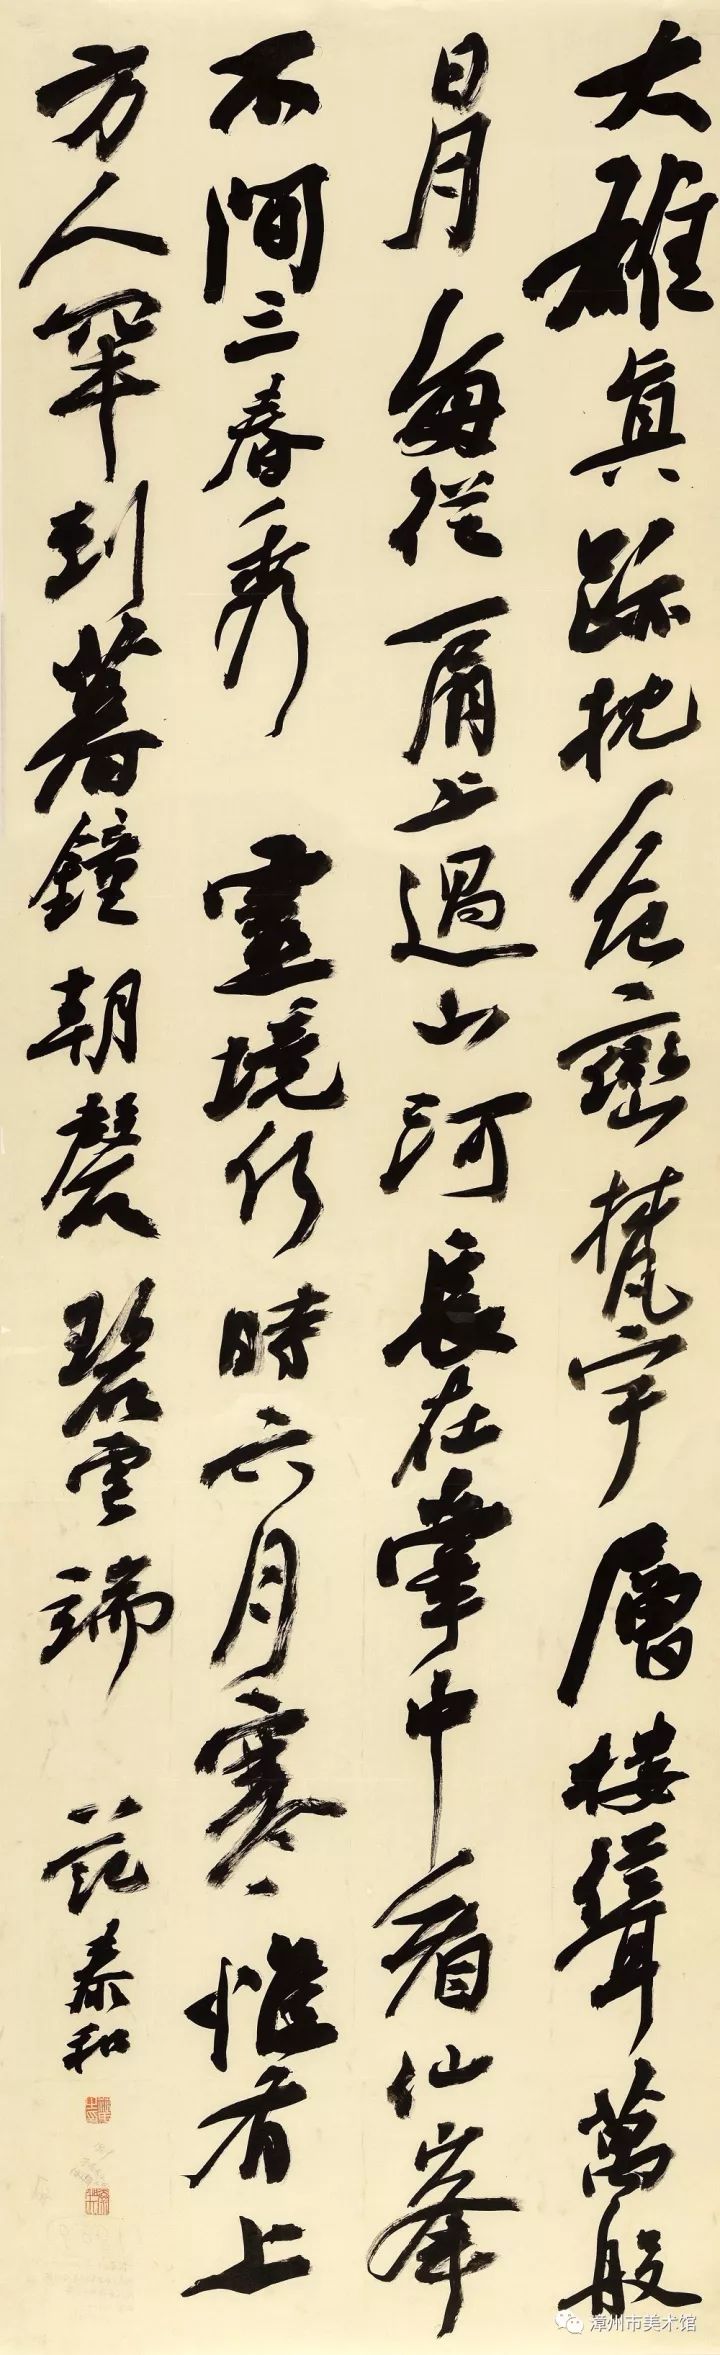 大雄真跡枕危巒梵宇層樓聳萬般
日月每從肩上過山河長在掌中看仙峯
不間三春秀靈境何時六月寒惟有上
方人罕到暮鐘朝磬碧雲端 范泰和
漳州市美术馆